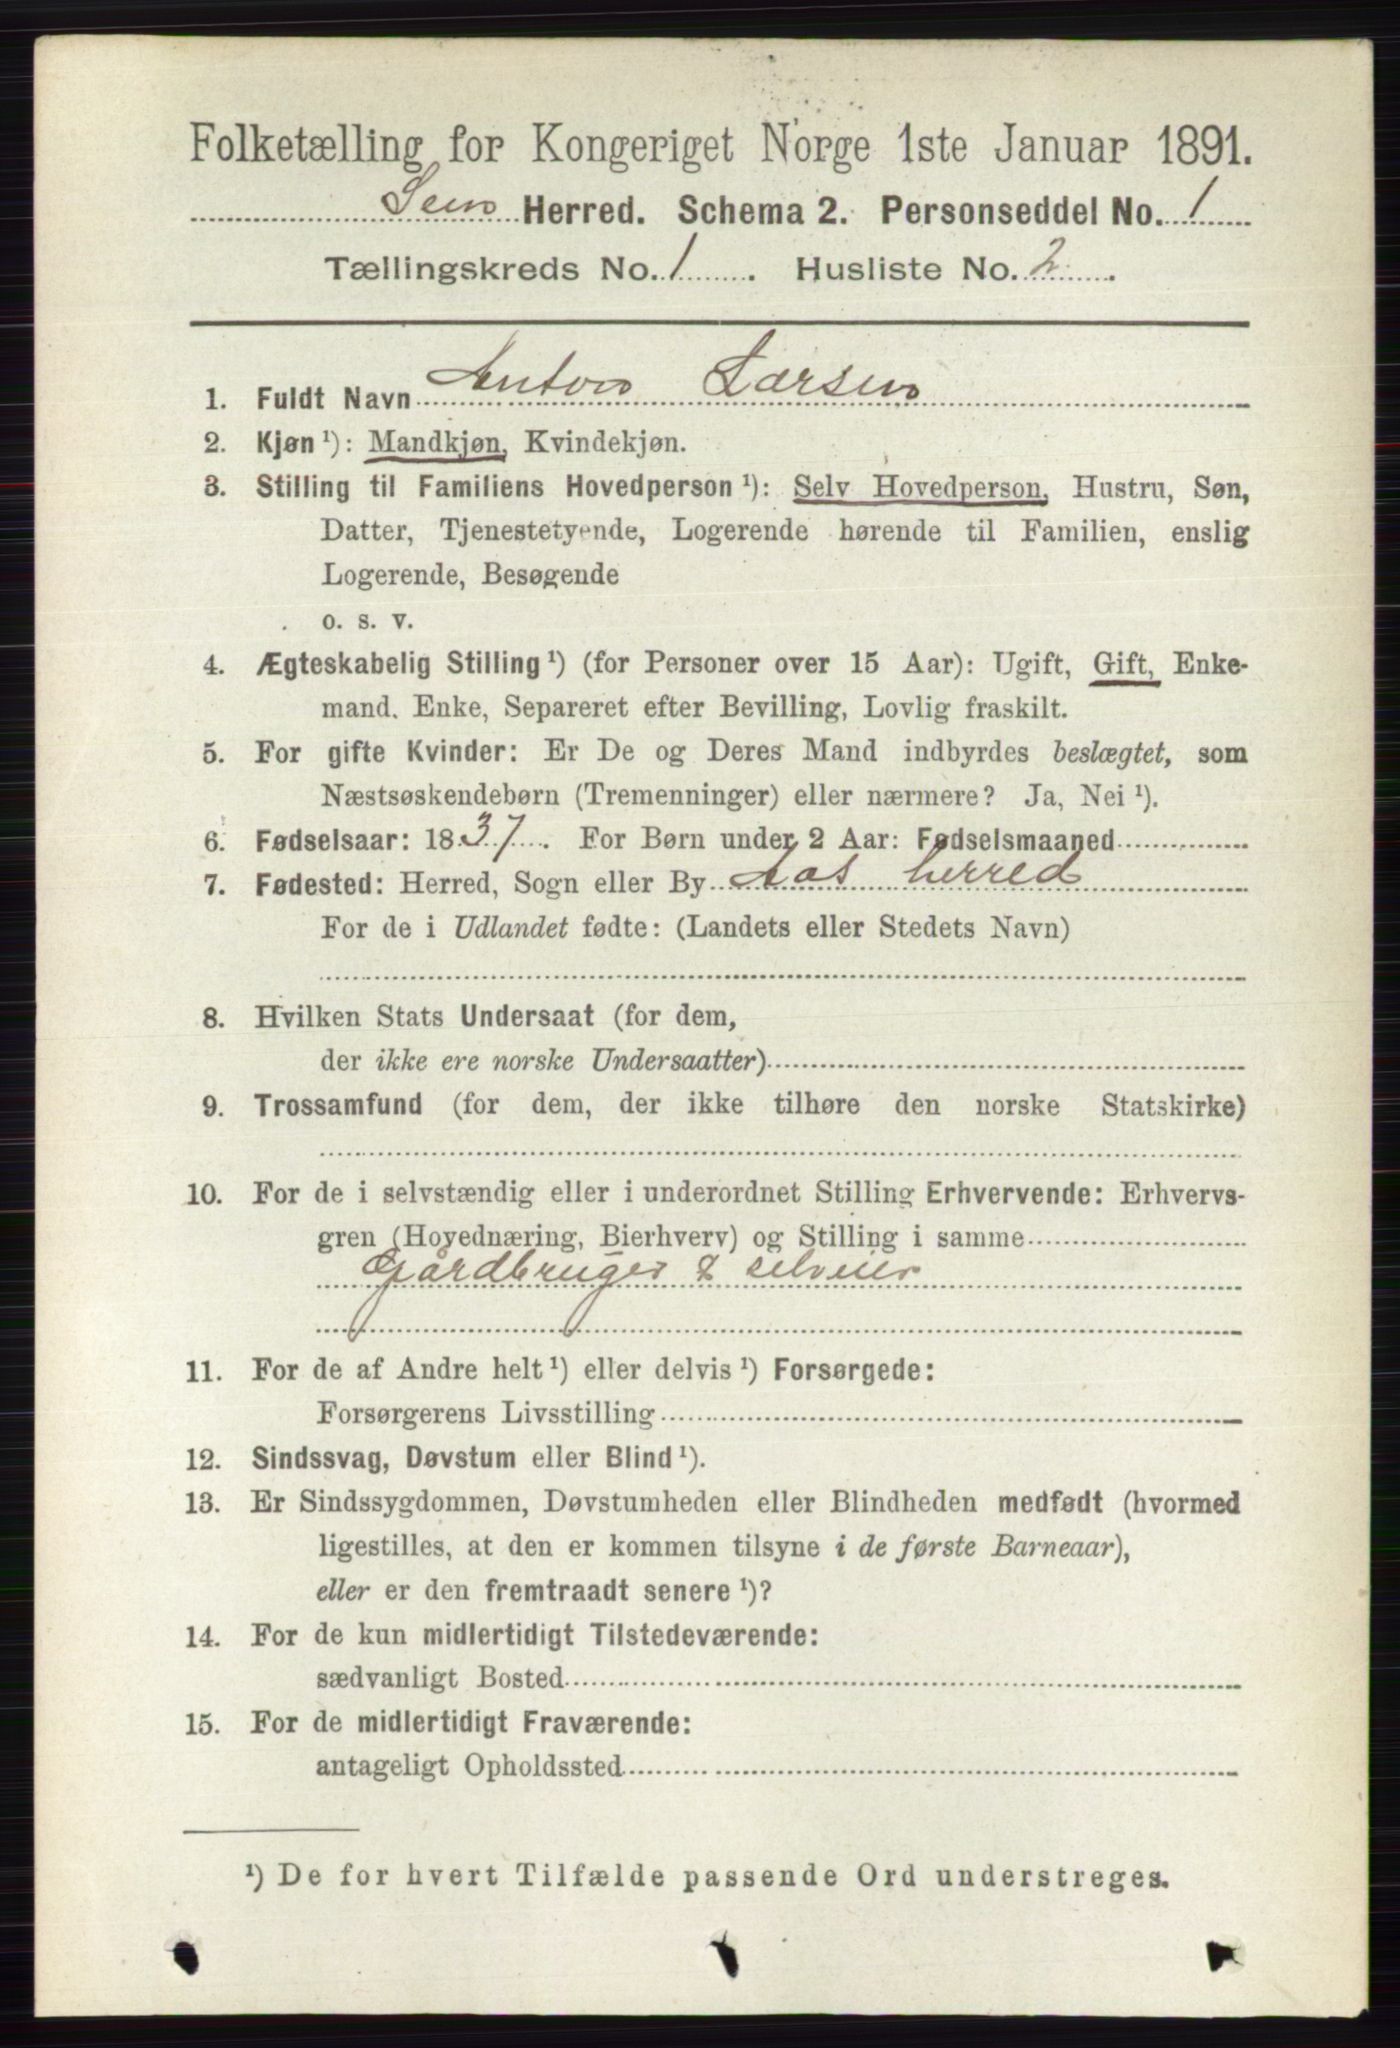 Folketælling for Kongeriget Norge 1ste Januar 1891.
Sem Herred. Schema 2. Personseddel No. 1
Tællingskreds No. 1. Husliste No. 2.
1. Fuldt Navn Anton Larsen
2. Kjøn ¹): Mandkjøn, Kvindekjøn.
3. Stilling til Familiens Hovedperson ¹): Selv Hovedperson, Hustru, Søn,
Datter, Tjenestetyende, Logerende hørende til Familien, enslig
Logerende, Besøgende
o. s. v.
4. Ægteskabelig Stilling ¹) (for Personer over 15 Aar): Ugift, Gift, Enke-
mand. Enke, Separeret efter Bevilling, Lovlig fraskilt.
5. For gifte Kvinder: Er De og Deres Mand indbyrdes beslægtet, som
Næstsøskendebørn (Tremenninger) eller nærmere? Ja, Nei ¹).
6. Fødselsaar: 1837. For Børn under 2 Aar: Fødselsmaaned
7. Fødested: Herred, Sogn eller By Aas herred
For de i Udlandet fødte: (Landets eller Stedets Navn)
8. Hvilken Stats Undersaat (for dem,
der ikke ere norske Undersaatter)
9. Trossamfund (for dem, der ikke tilhøre den norske Statskirke)
10. For de i selvstændig eller i underordnet Stilling Erhvervende: Erhvervs-
gren (Hovednæring, Bierhverv) og Stilling i samme
Gårdbruger & selveier
11. For de af Andre helt ¹) eller delvis ¹) Forsørgede:
Forsørgerens Livsstilling
12. Sindssvag, Døvstum eller Blind ¹).
13. Er Sindssygdommen, Døvstumheden eller Blindheden medfødt (hvormed
ligestilles, at den er kommen tilsyne i de første Barneaar),
eller er den fremtraadt senere ¹)?
14. For de kun midlertidigt Tilstedeværende:
sædvanligt Bosted
15. For de midlertidigt Fraværende:
antageligt Opholdssted
¹) De for hvert Tilfælde passende Ord understreges.